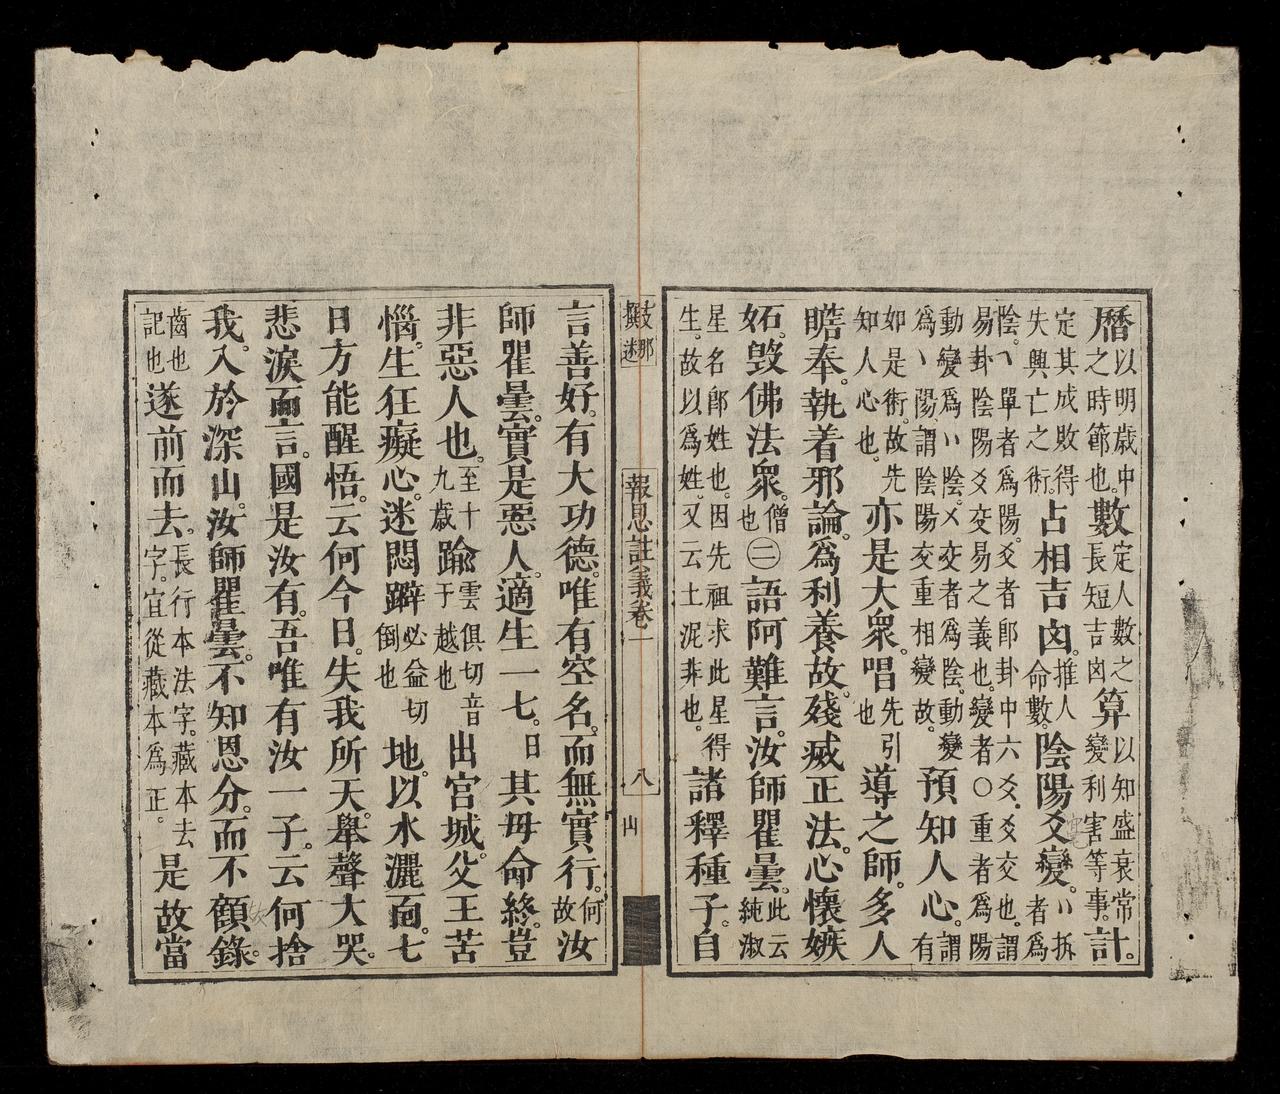 曆以明歲中之時節也。數定人數之長短吉凶算以知盛衰常變利害等事。計。
定其成敗得失興亡之術。占相吉凶。推人命數。陰陽爻變。丷拆者爲
陰。丶單者爲陽。爻者卽卦中六爻。爻交也。謂易卦陰陽爻交易之義也。變者〇重者爲陽
動變爲丷陰。㐅交者爲陰。動變爲丶陽。謂陰陽交重相變故。預知人心。謂有
如是術。故先知人心也。亦是大衆。唱先引也導之師。多人
瞻奉。執着邪論。爲利養故。殘烕正法。心懷嫉
妬。毀佛法衆。僧也㊁語阿難言。汝師瞿曇。此云純淑
星名卽姓也。因先祖求此星得生。故以爲姓。又云土泥非也。諸釋種子。自
報恩註義卷一 八 山
言善好。有大功德。唯有空名。而無實行。何故汝
師瞿曇。實是惡人。適生一七。日其母命終。豈
非惡人也。至十九歲踰雲俱切音于越也出宮城。父王苦
惱。生狂癡心。迷悶躃必益切倒也地。以水灑面。七
日方能醒悟。云何今日。失我所天。舉聲大哭。
悲淚而言。國是汝有。吾唯有汝一子。云何捨
我。入於深山。汝師瞿曇。不知恩分。而不顧錄。
齒也記也遂前而去。長行本法字。藏本去字。宜從藏本爲正。是故當